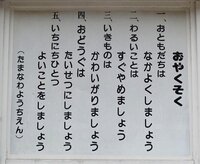 おやくそく
一、おともだちは
なかよくしましょう
二、わるいことは
すぐやめましょう
三、いきものは
かわいがりましょう
四、おどうぐは
たいせつにしましょう
五、いちにちひとつ
よいことをしましょう
(たまなわようちえん)